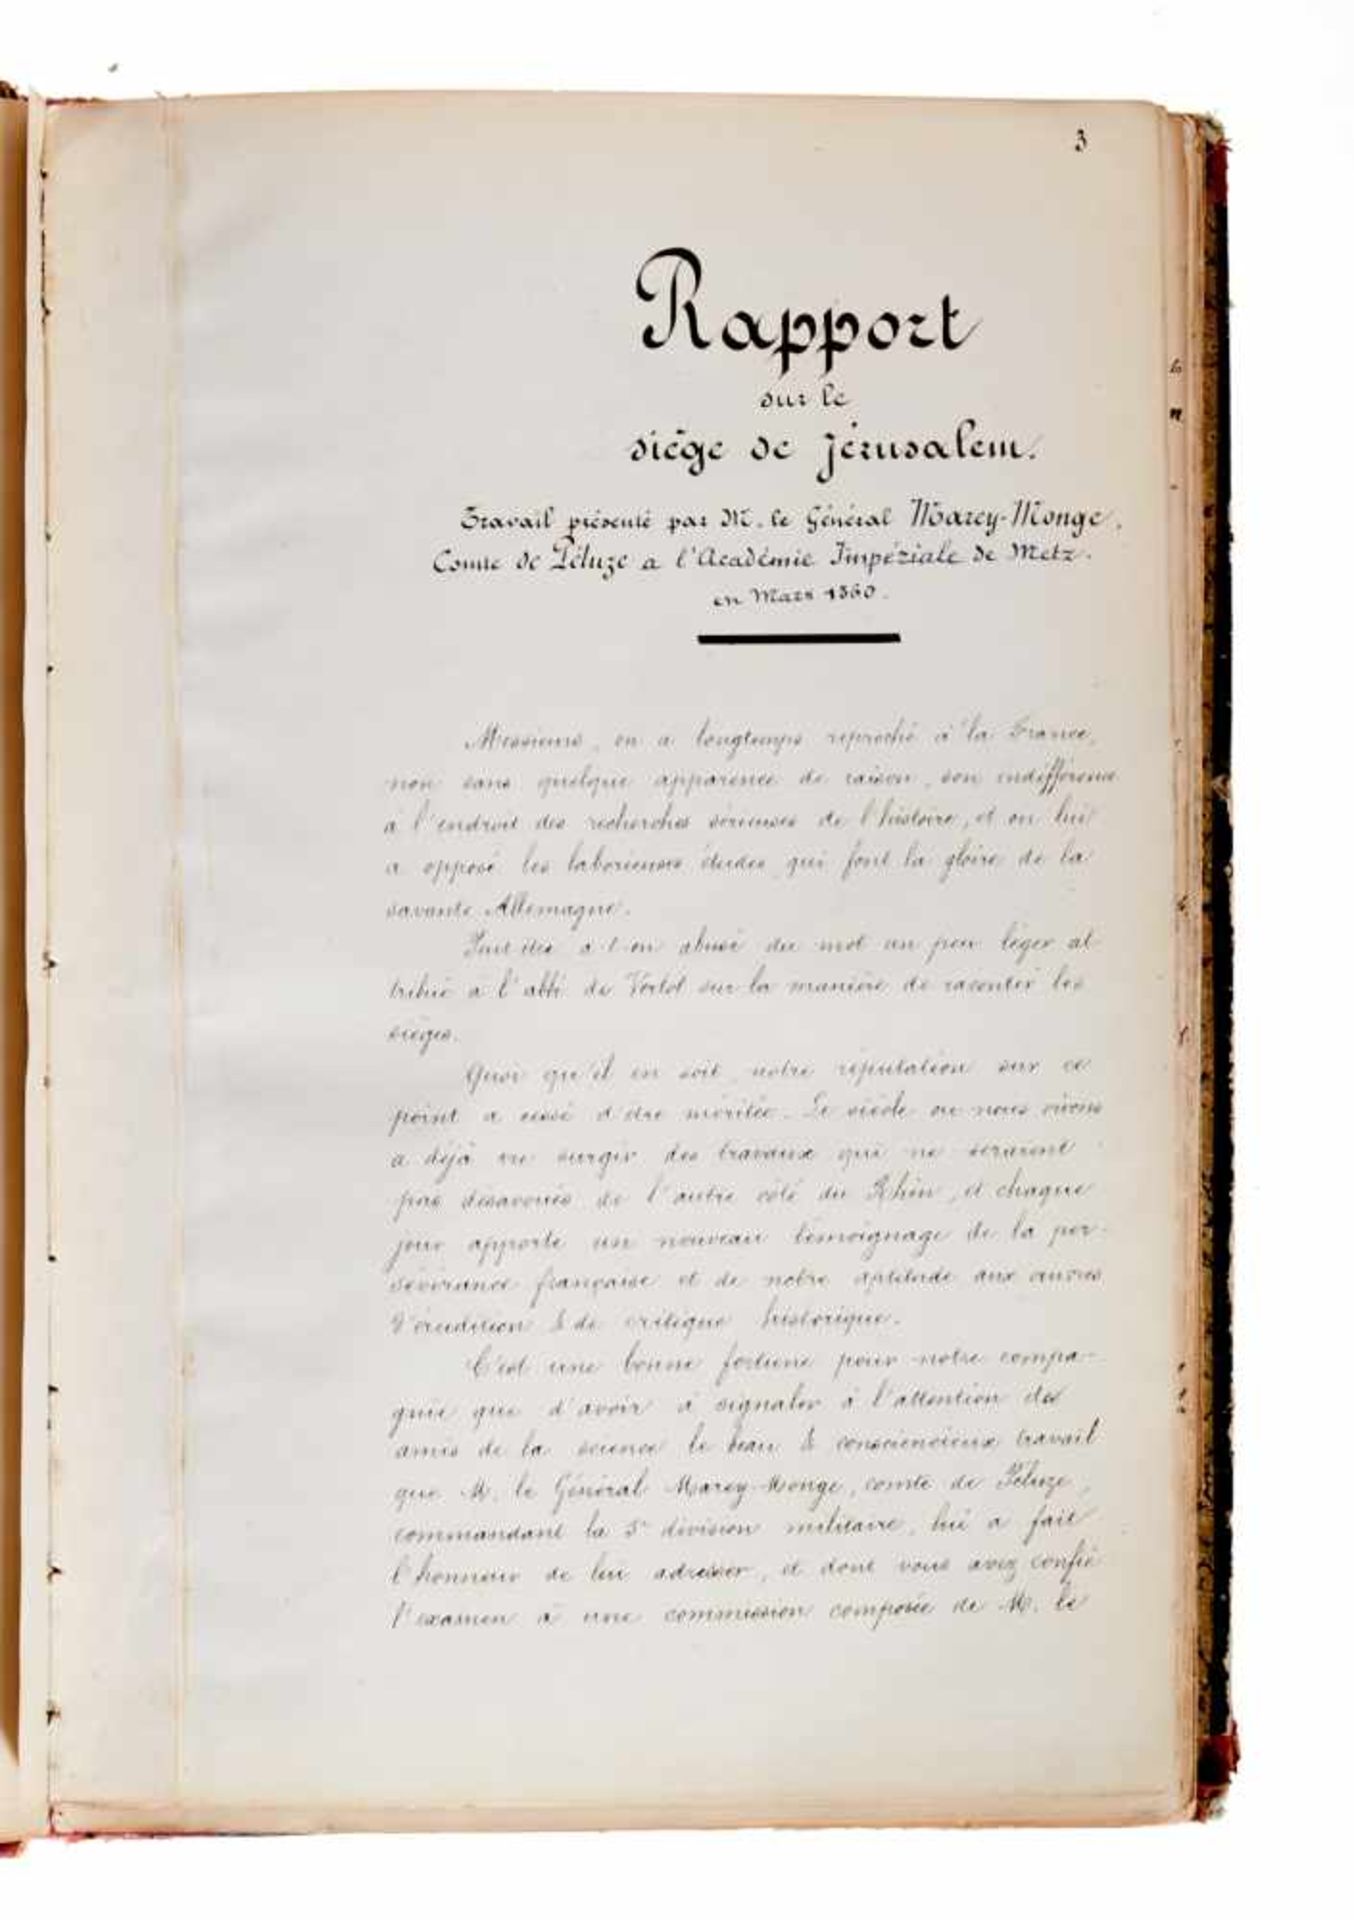 3
Rapport
sur le
siège de Jérusalem.
Travail présenté par M. le Général Marey-Monge,
Comte de Péluze a l'Académie Impériale de Metz.
en Mars 1860.
Messieurs, on a longtemps reproché à la France,
non sans quelque apparence de raison, son indifférence
a l'endroit des recherches sérieuses de l'histoire, et on lui
a opposé les laborieuses études qui font la gloire de la
savante Allemagne.
Peut être a-t-on abusé du mot un peu léger at-
tribué à l'abbé de Vertot sur la manière de raconter les
sièges.
Quoi qu'il en soit, notre réputation sur ce
point a cessé d'être méritée. Le siècle ou nous vivons
a déjà vu surgir des travaux qui ne seraient
pas désavoués de l'autre côté du Rhin, et chaque
jour apporte un nouveau témoignage de la per-
sévérance française et de notre aptitude aux œuvres
d'érudition & de critique historique.
C'est une bonne fortune pour notre compa-
gnie que d'avoir à signaler à l'attention des
amis de la science le beau & consciencieux travail
que M. le Général Marey-Monge, comte de Péluze,
commandant la 5e division militaire, lui a fait
l'honneur de lui adresser, et dont vous avez confié
l'examen à une commission composée de M. le